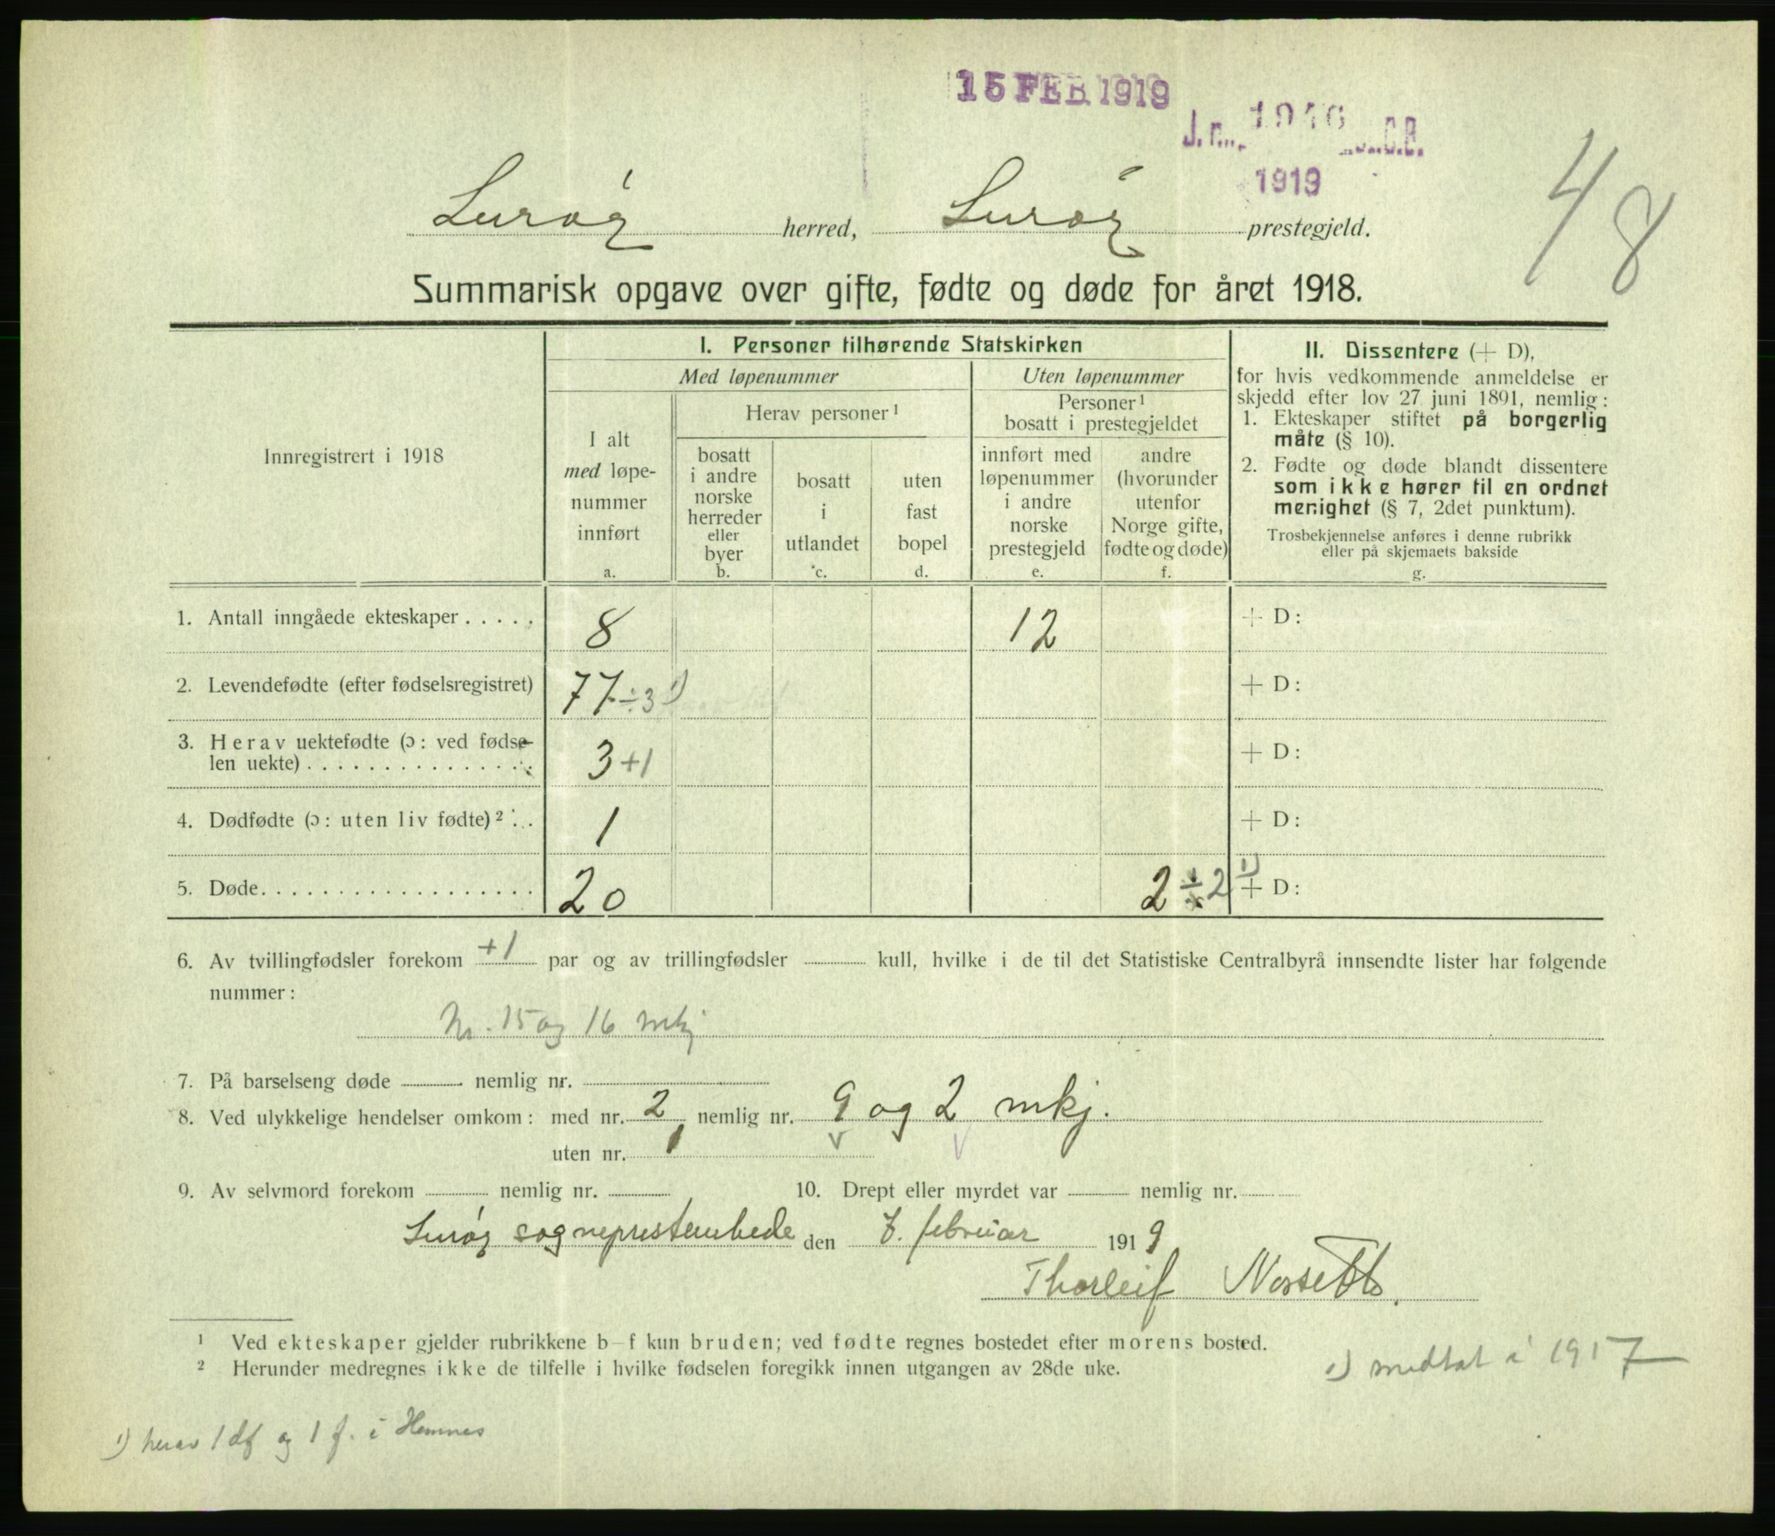 15 FEB 1919
J. n. 1946 S.C.B.
1919
48
Lurøy herred, Lurøy prestegjeld.
Summarisk opgave over gifte, fødte og døde for året 1918.
Innregistrert i 1918
I. Personer tilhørende Statskirken
Med løpenummer
Uten løpenummer
I alt
med løpe-
nummer
innført
a.
Herav personer 1
bosatt
i andre
norske
herreder
eller
byer
b.
bosatt
i
utlandet
c.
uten
fast
bopel
d.
Personer 1
bosatt i prestegjeldet
innført med
løpenummer
i andre
norske
prestegjeld
e.
andre
(hvorunder
utenfor
Norge gifte,
fødte og døde)
f.
II. Dissentere (+ D),
for hvis vedkommende anmeldelse er
skjedd efter lov 27 juni 1891, nemlig:
1. Ekteskaper stiftet på borgerlig
måte (§ 10).
2. Fødte og døde blandt dissentere
som ikke hører til en ordnet
menighet (§ 7, 2det punktum).
Trosbekjennelse anføres i denne rubrikk
eller på skjemaets bakside
g.
1. Antall inngåede ekteskaper..... 8 12 + D:
2. Levendefødte (efter fødselsregistret) 77 ÷ 3 1) + D:
3. Herav uektefødte (ɔ: ved fødse-
len uekte)............... 3 +1 + D:
4. Dødfødte (ɔ: uten liv fødte) 2 ... 1 + D:
5. Døde.................. 20 2 ÷ 2 1) + D:
6. Av tvillingfødsler forekom +1 par og av trillingfødsler kull, hvilke i de til det Statistiske Centralbyrå innsendte lister har følgende
nummer:
Nr. 15 og 16 mkj
7. På barselseng døde nemlig nr.
8. Ved ulykkelige hendelser omkom: med nr. 2 nemlig nr. 9 og 2 mkj.
uten nr. 1
9. Av selvmord forekom nemlig nr. 10. Drept eller myrdet var nemlig nr.
Lurøy sogneprestembede den 7. februar 1919
Thorleif
1 Ved ekteskaper gjelder rubrikkene b–f kun bruden; ved fødte regnes bostedet efter morens bosted.
2 Herunder medregnes ikke de tilfelle i hvilke fødselen foregikk innen utgangen av 28de uke.
1) medtat i 1917
1) herav 1 df og 1 f. i Hemnes